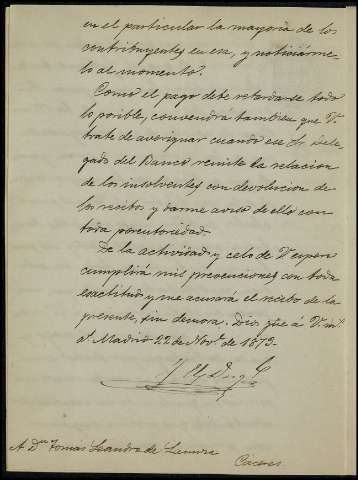 en el particular la mayoria de los
contribuyentes en esa, y noticiárme-
lo al momento.
Como el pago debe retardarse todo
lo posible, convendrá tambien que V.
trate de averiguar cuando ese Sr. Dele-
gado del Banco remite la relacion
de los insolventes con devolucion de
los recibos y darme aviso de ello con
toda perentoriedad.
De la actividad y celo de V espero
cumplirá mis prevenciones con toda
exactitud y me acusará el recibo de la
presente, sin demora. Dios gue á V. m.
a. Madrid 22 de Nov. de 1873.
A Dn Tomas Leandro de
Cáceres